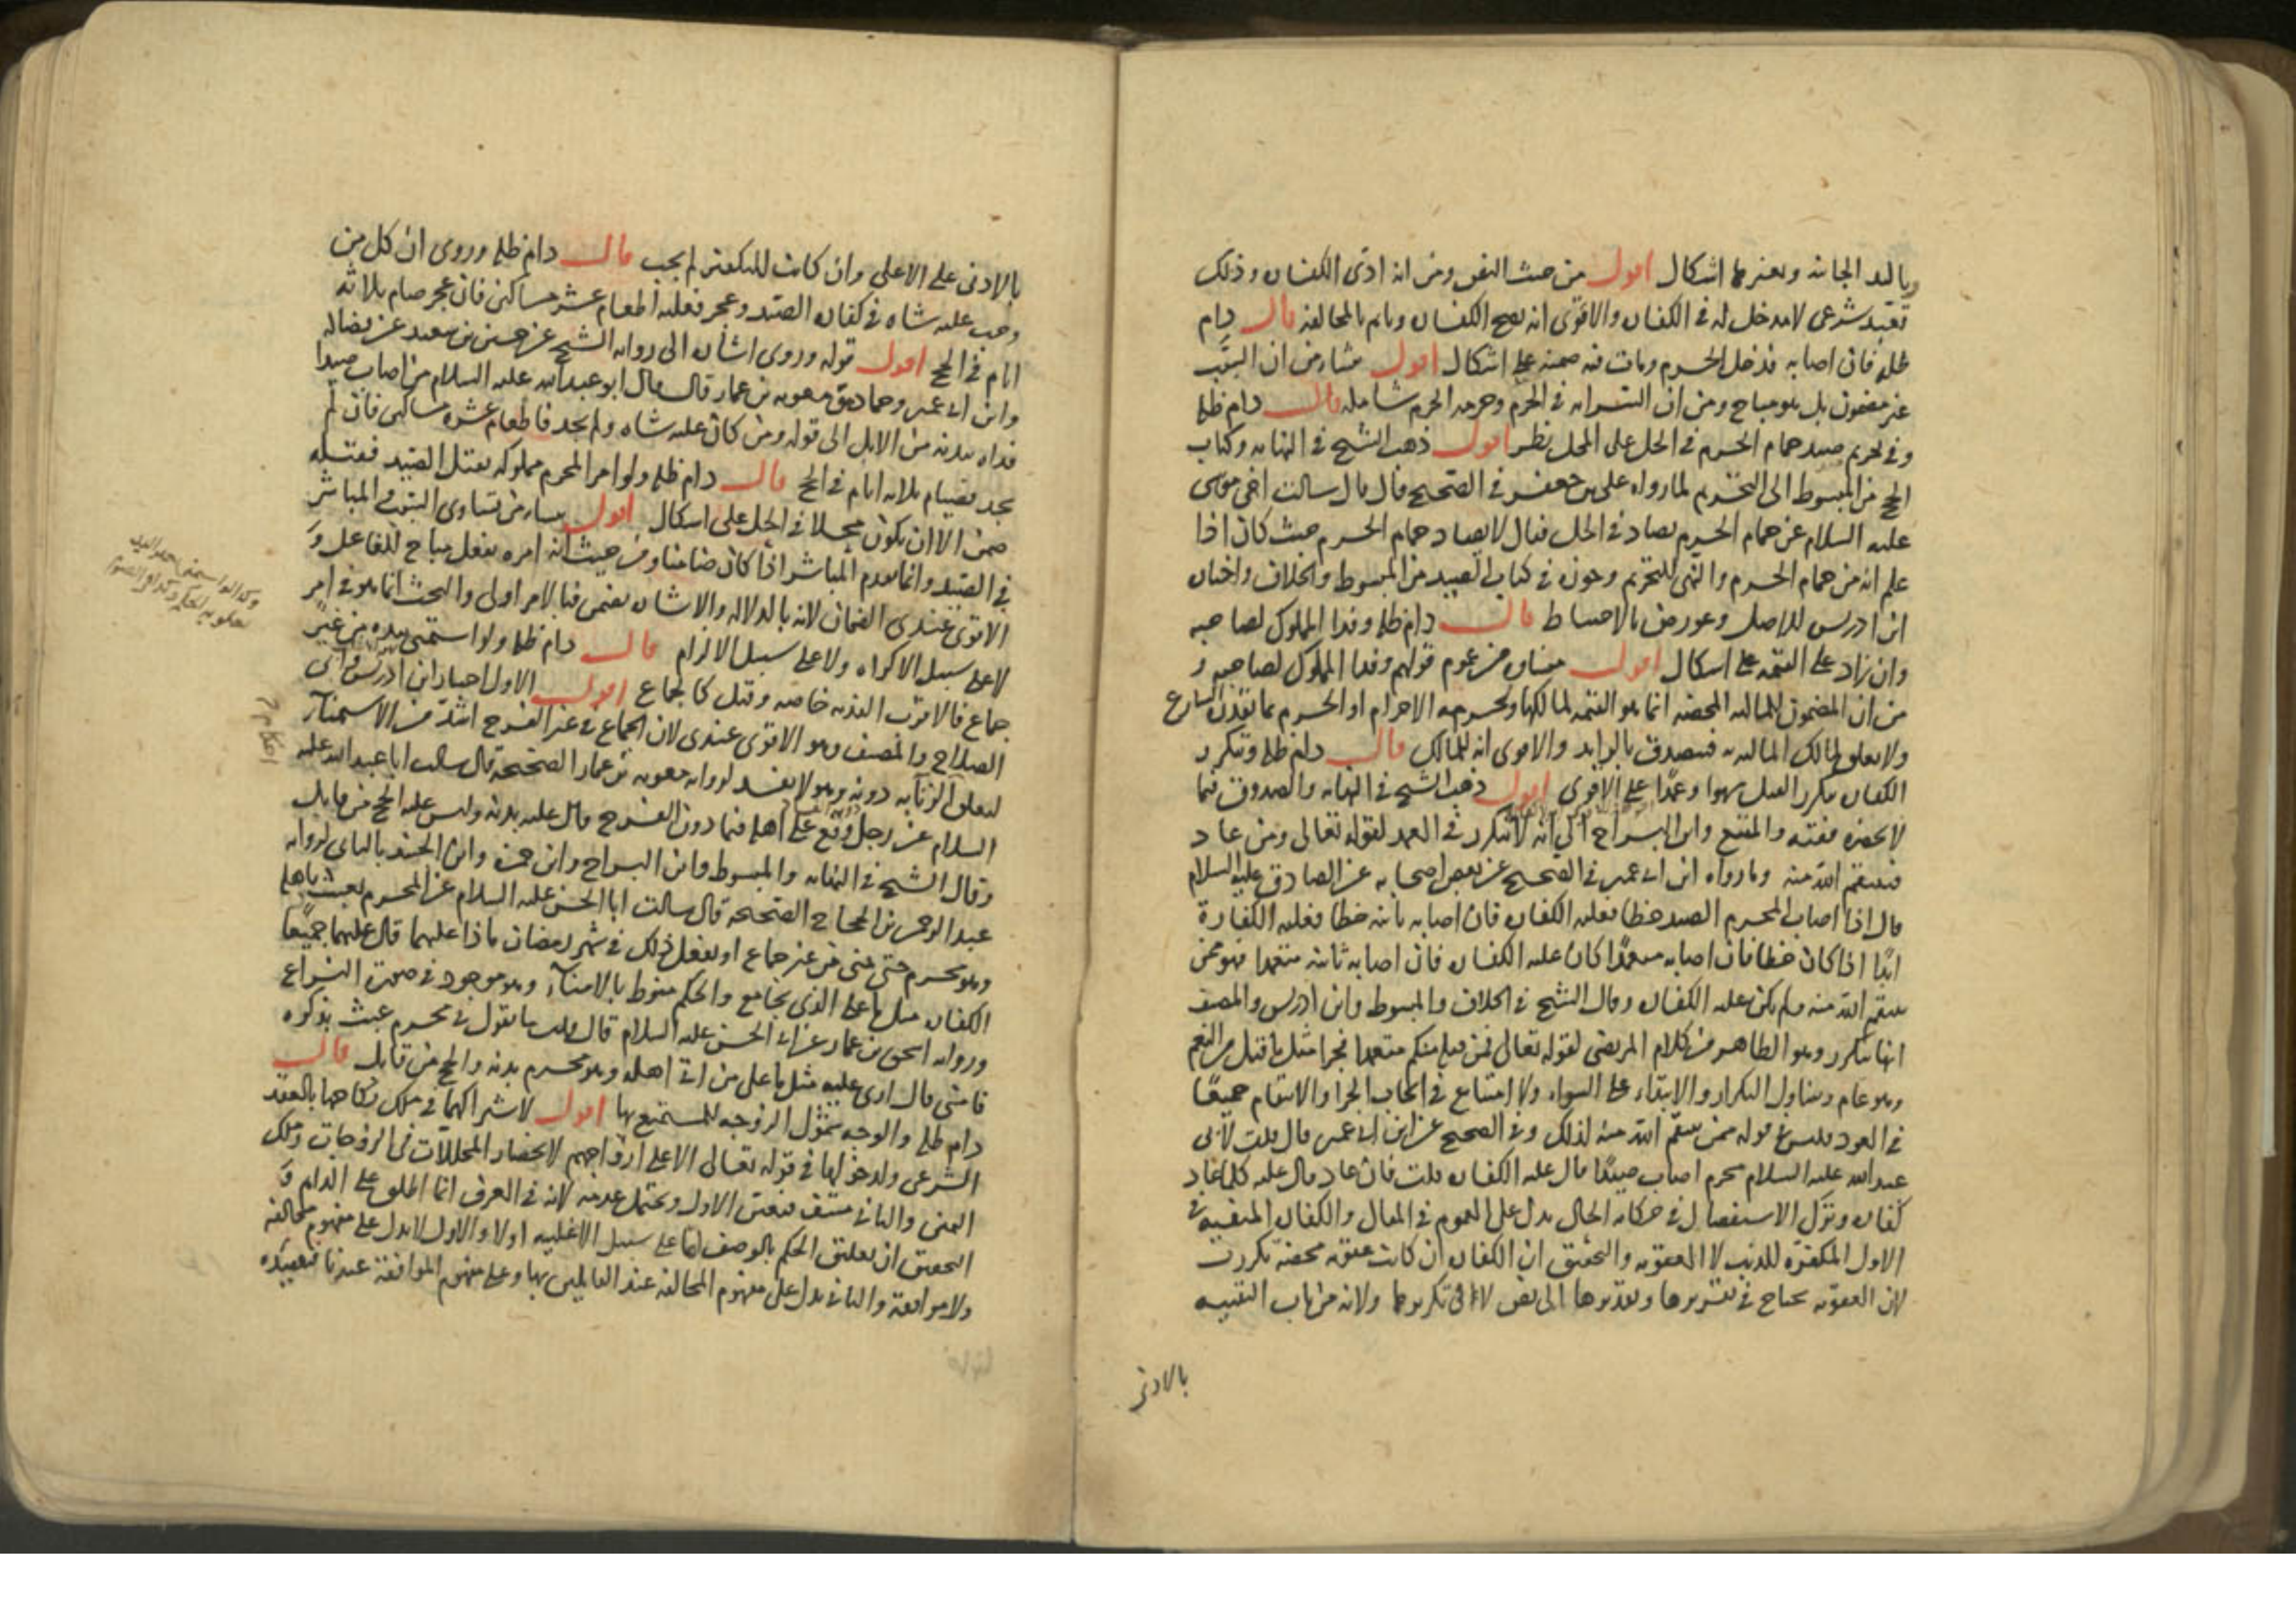 وباليد الجانية وبغيرهما اشكال اقول من حيث النص ومن انه ادى الكفارة وذلك
تعبد شرعى لا مدخل له فى الكفارة والاقوى انه يصح الكفارة وياثم بالمخالفة قال دام
ظله فان اصابه فدخل الحرم ومات فيه ضمنه على اشكال اقول منشأ من ان السبب
غير مضمون بل هو مباح ومن ان السراية فى الحرم وحرمة الحرم شاملة قال دام ظله
وفى تحريم صيد حمام الحرم فى الحل على المحل نظر اقول ذهب الشيخ فى النهاية وكتاب
الحج من المبسوط الى التحريم لما رواه على بن جعفر فى الصحيح قال قال سالت اخى موسى
عليه السلام عن حمام الحرم يصاد فى الحل فقال لا يصاد حمام الحرم حيث كان اذا
علم انه من حمام الحرم والنهى للتحريم وجوزه فى كتاب الصيد من المبسوط والخلاف واختاره
ابن ادريس للاصل وعورض بالاحتياط قال دام ظله وفدا المملوك لصاحبه
وان زاد على القيمة على اشكال اقول منشاه من عموم قولهم وفدا المملوك لصاحبه و
من ان المضمون للمالية المحضة انما هو القيمة لمالكها ولحرمة الاحرام او الحرم ما يقدره الشارع
ولا تعلق لمالك المالية به فيتصدق بالزايد والاقوى انه للمالك قال دام ظله وتتكرر
الكفارة بتكرر القتل سهوا وعمدا على الاقوى اقول ذهب الشيخ فى النهاية والصدوق فيما
لا يحضره فقيه والمقنع وابن البراج الى انه لا تتكرر فى العمد لقوله تعالى ومن عاد
فينتقم الله منه وما رواه ابن ابى عمير فى الصحيح عن بعض اصحابه عن الصادق عليه السلام
قال اذا اصاب المحرم الصيد خطا فعليه الكفارة فان اصابه ثانية خطا فعليه الكفارة
ابدا اذا كان خطا فان اصابه متعمدا كان عليه الكفارة فان اصابه ثانية متعمدا فهو ممن
ينتقم الله منه ولم يكن عليه الكفارة وقال الشيخ فى الخلاف والمبسوط وابن ادريس والمصنف
انها تتكرر وهو الظاهر من كلام المرتضى لقوله تعالى فمن قتله منكم متعمدا فجزا مثل ما قتل من النعم
وهو عام ويتناول التكرار والابتداء على السواء ولا امتناع فى ايجاب الجزا والانتقام جميعا
فى العود فليس قوله ممن ينتقم الله منه لذلك وفى الصحيح عن ابن ابى عمير قال قلت لابى
عبد الله عليه السلام محرم اصاب صيدا قال عليه الكفارة قلت فان عاد قال عليه كلما عاد
كفارة وترك الاستفصال فى حكاية الحال يدل على العموم فى المقال والكفارة المنفية فى
الاول المكفرة للذنب لا العقوبة والتحقيق ان الكفارة ان كانت عقوبة محضة تكررت
لان العقوبة يحتاج فى تقريرها وتقديرها الى نص لا فى تكريرها ولانه من باب التنبيه
بالادنى
بالادنى على الاعلى وان كانت للتكفير لم يجب قال دام ظله وروى ان كل من
وجب عليه شاة فى كفارة الصيد وعجز فعليه اطعام عشرة مساكين فان عجز صام ثلاثة
ايام فى الحج اقول قوله وروى اشارة الى رواية الشيخ عن حسين بن سعيد عن فضالة
وابن ابى عمير وحماد عن معوية بن عمار قال قال ابو عبد الله عليه السلام من اصاب صيدا
فداه بدنة من الابل الى قوله ومن كان عليه شاة ولم يجد فاطعام عشرة مساكين فان لم
يجد فصيام ثلاثة ايام فى الحج قال دام ظله ولو امر المحرم مملوكه بقتل الصيد فقتله
ضمن الا ان يكون محلا فى الحل على اشكال اقول ينشأ من تساوى السبب والمباشر
فى الصيد وانما يقدم المباشر اذا كان ضامنا ومن حيث انه امره بفعل مباح للفاعل و
الاقوى عندى الضمان لانه بالدلالة والاشارة يضمن فبالامر اولى والبحث انما هو فى امر
لا على سبيل الاكراه ولا على سبيل الالزام قال دام ظله ولو استمنى بيده من غير
جماع فالاقرب البدنة خاصة وقيل كالجماع اقول الاول اختيار ابن ادريس وابى
الصلاح والمصنف وهو الاقوى عندى لان الجماع فى غير الفرج اشد من الاستمناء
لتعلق الزنا به دونه وهو لا يفسد لرواية معوية بن عمار الصحيحة قال سالت ابا عبد الله عليه
السلام عن رجل وقع على اهله فيما دون الفرج قال عليه بدنة وليس عليه الحج من قابل
وقال الشيخ فى النهاية والمبسوط وابن البراج وابن حمزة وابن الجنيد بالثانى لرواية
عبد الرحمن بن الحجاج الصحيحة قال سالت ابا الحسن عليه السلام عن المحرم يعبث باهله
وهو محرم حتى يمنى من غير جماع او يفعل ذلك فى شهر رمضان ماذا عليهما قال عليهما جميعا
الكفارة مثل ما على الذى يجامع والحكم منوط بالامناء وهو موجود فى صورة النزاع
ورواية اسحق بن عمار عن ابى الحسن عليه السلام قال قلت ما تقول فى محرم عبث بذكره
فامنى قال ارى عليه مثل ما على من اتى اهله وهو محرم بدنة والحج من قابل قال
دام ظله والوجه شمول الزوجة للمستمتع بها اقول لاشتراكهما فى ملك نكاحها بالعقد
الشرعى ولدخولها فى قوله تعالى الا على ازواجهم لانحصار المحللات فى الزوجات وملك
اليمين والثانى منتف فتعين الاول ويحتمل عدمه لانه فى العرف انما اطلق على الدايم و
التحقيق ان تعليق الحكم بالوصف اما على سبيل الاغلبية او لا والاول لا يدل على مفهوم مخالفة
ولا موافقة والثانى يدل على مفهوم المخالفة عند القايلين بها وعلى مفهوم الموافقة عندنا